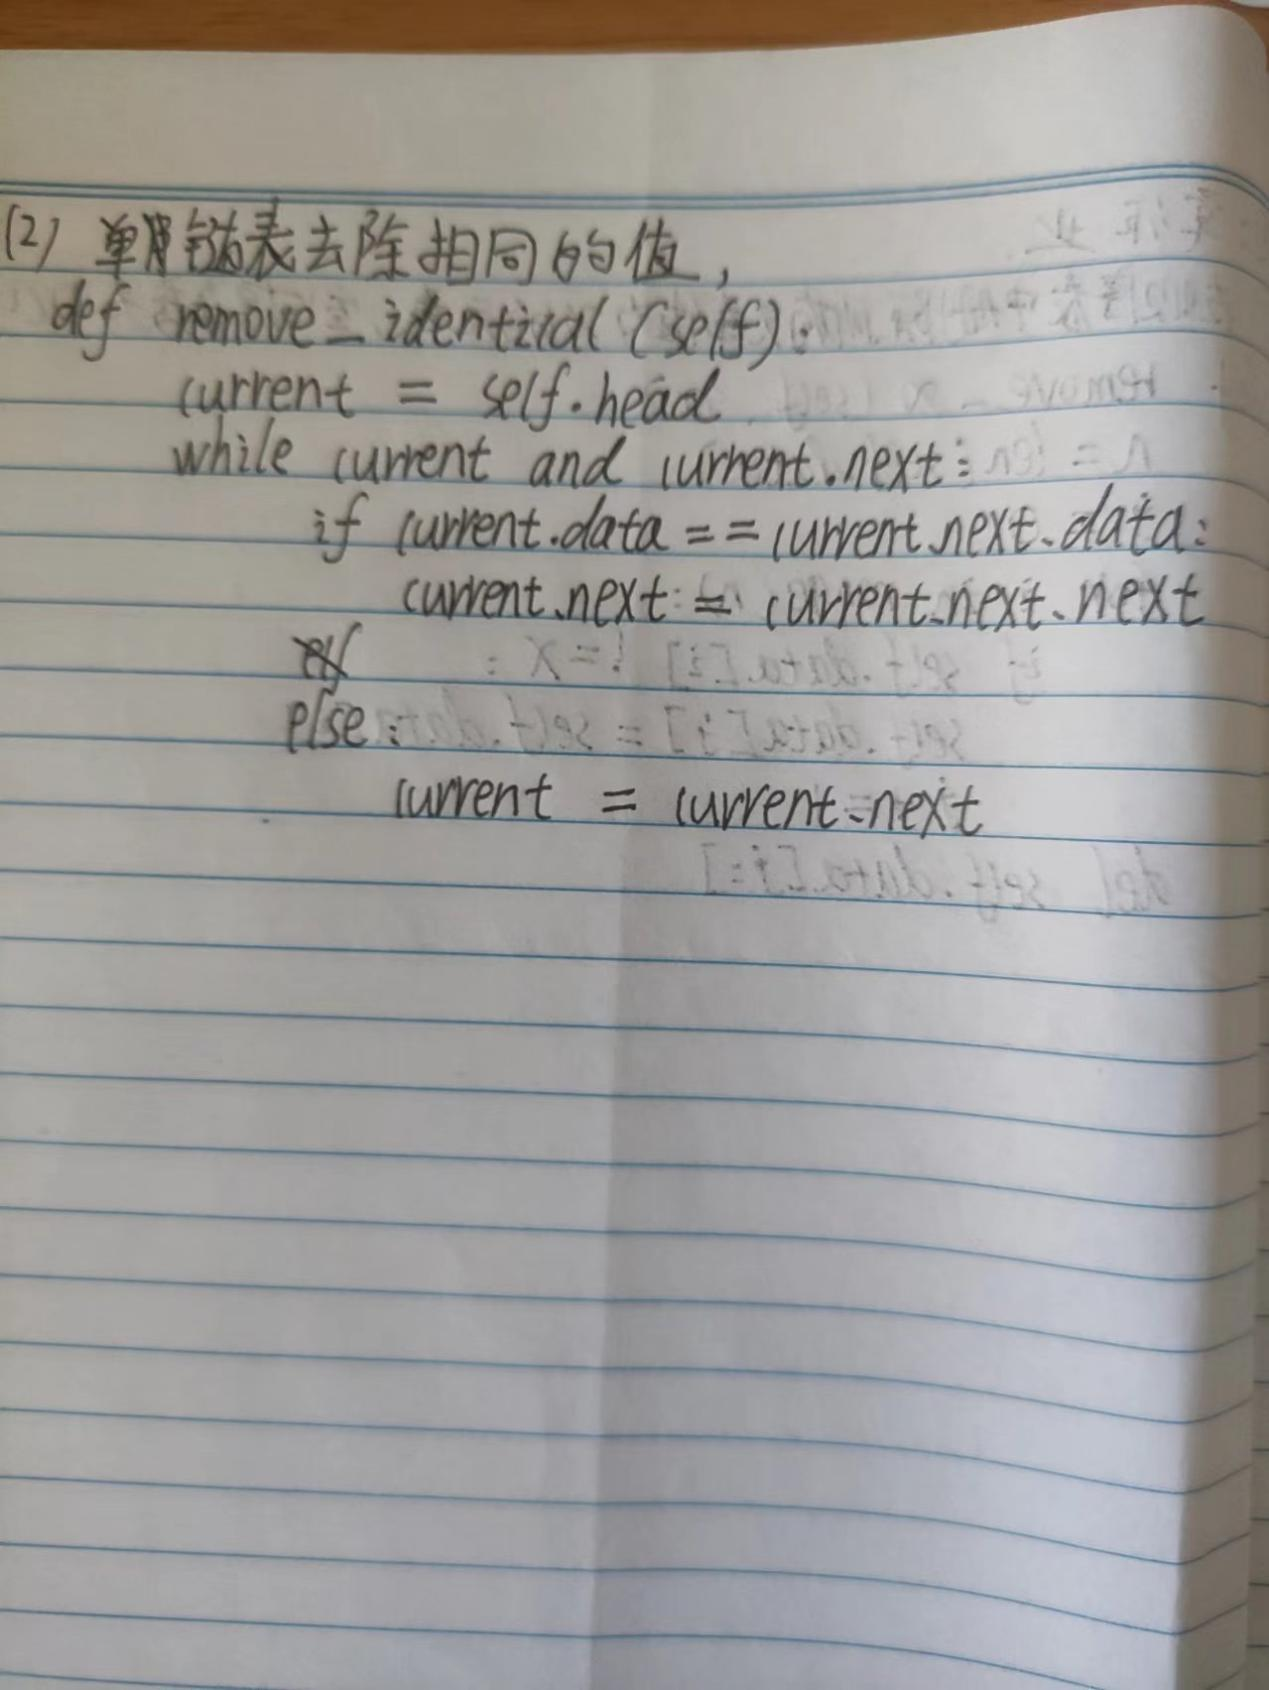 (2) 单链表去除相同的值,
def remove_identical(self):
current = self.head
while current and current.next:
if current.data == current.next.data:
current.next = current.next.next
else:
current = current.next